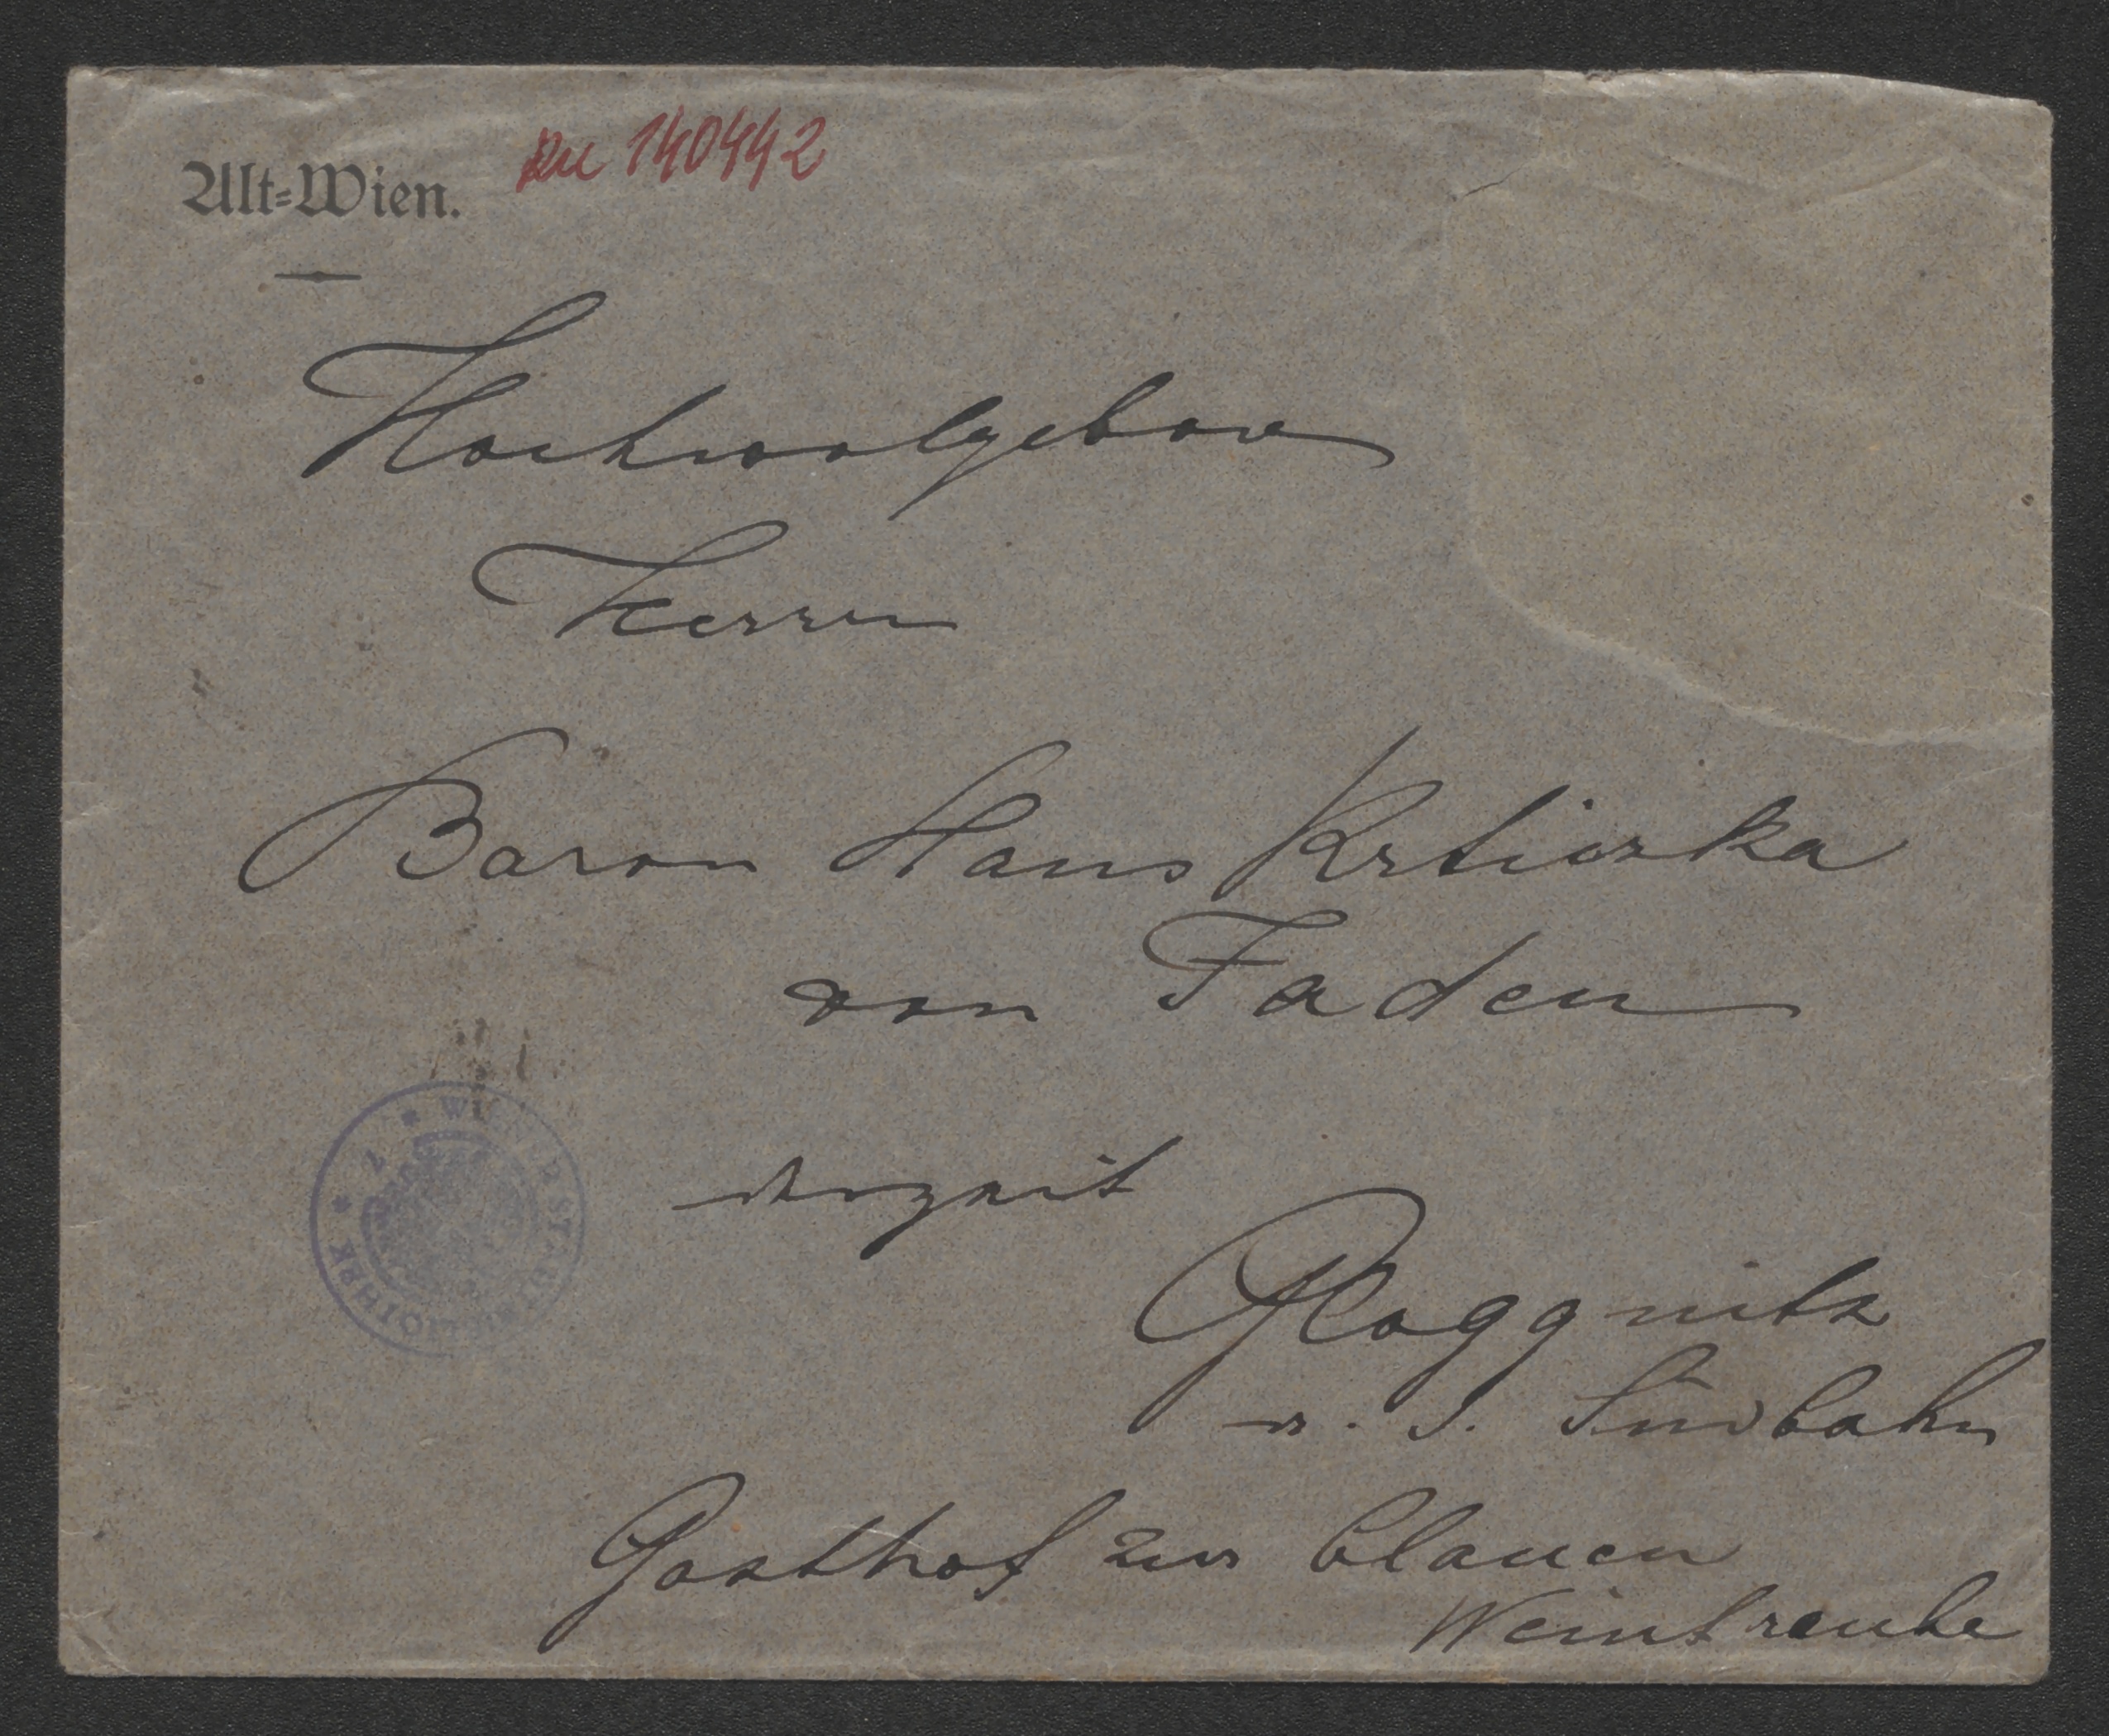 Alt-Wien.
zu 140442
Hochwolgebor
Herrn
Baron Hans Krticzka
von Faden
derzeit
Gloggnitz
a. d. Südbahn
Gasthof zur blauen
Weintraube
* WIENER STADTBIBLIOTHEK *